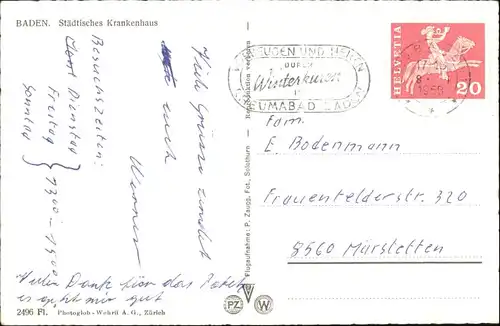 BADEN. Städtisches Krankenhaus
Viele Grüsse sendet
euch
Werner
Besuchszeiten:
Dienstag
Freitag } 1300-1500
Sonntag
Vielen Dank für das
es geht mir gut
2496 Fl. Photoglob-Wehrli A. G., Zürich
Reproduktion verboten
Flugaufnahme: P. Zaugg, Fot., Solothurn
PZ
W
FREUDEN UND HEILEN
DURCH
Winterkuren
IM
THERMALBAD BADEN
HELVETIA
20
Fam.
E. Bodenmann
Frauenfelderstr. 320
8560 Märstetten